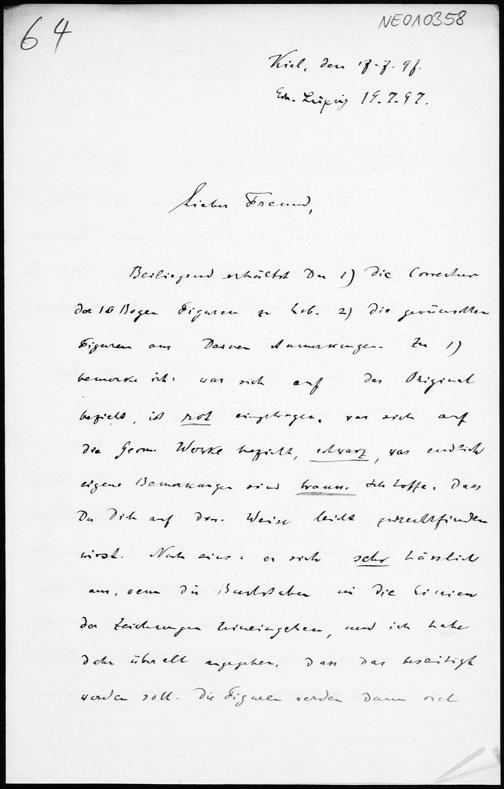 64
NEOA0358
Kiel, den 17.7.97.
Leipzig 19.7.97.
Lieber Freund,
Beiliegend erhältst Du 1) die Correctur
der 10 Bogen Figuren zu 2) die gewünschten
Figuren aus Deinen Anmerkungen. Zu 1)
bemerke ich: was sich auf das Original
bezieht, ist rot eingetragen, was sich auf
die Geom. Werke bezieht, schwarz, was endlich
eigene Bemerkungen sind braun. Ich hoffe, dass
Du Dich auf diese Weise leicht zurechtfinden
wirst. Noch eins: es sieht sehr hässlich
aus, wenn die Buchstaben in die Linien
der Zeichnungen hineingehen, und ich habe
daher überall angegeben, dass das beseitigt
werden soll. Die Figuren werden dann viel